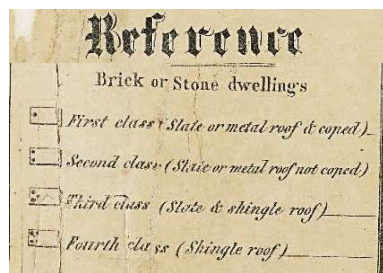 Reference
Brick or Stone dwellings
First class (Slate or metal roof & coped)
Second class (Slate or metal roof not coped)
Third class (Slate & shingle roof)
Fourth class (Shingle roof)